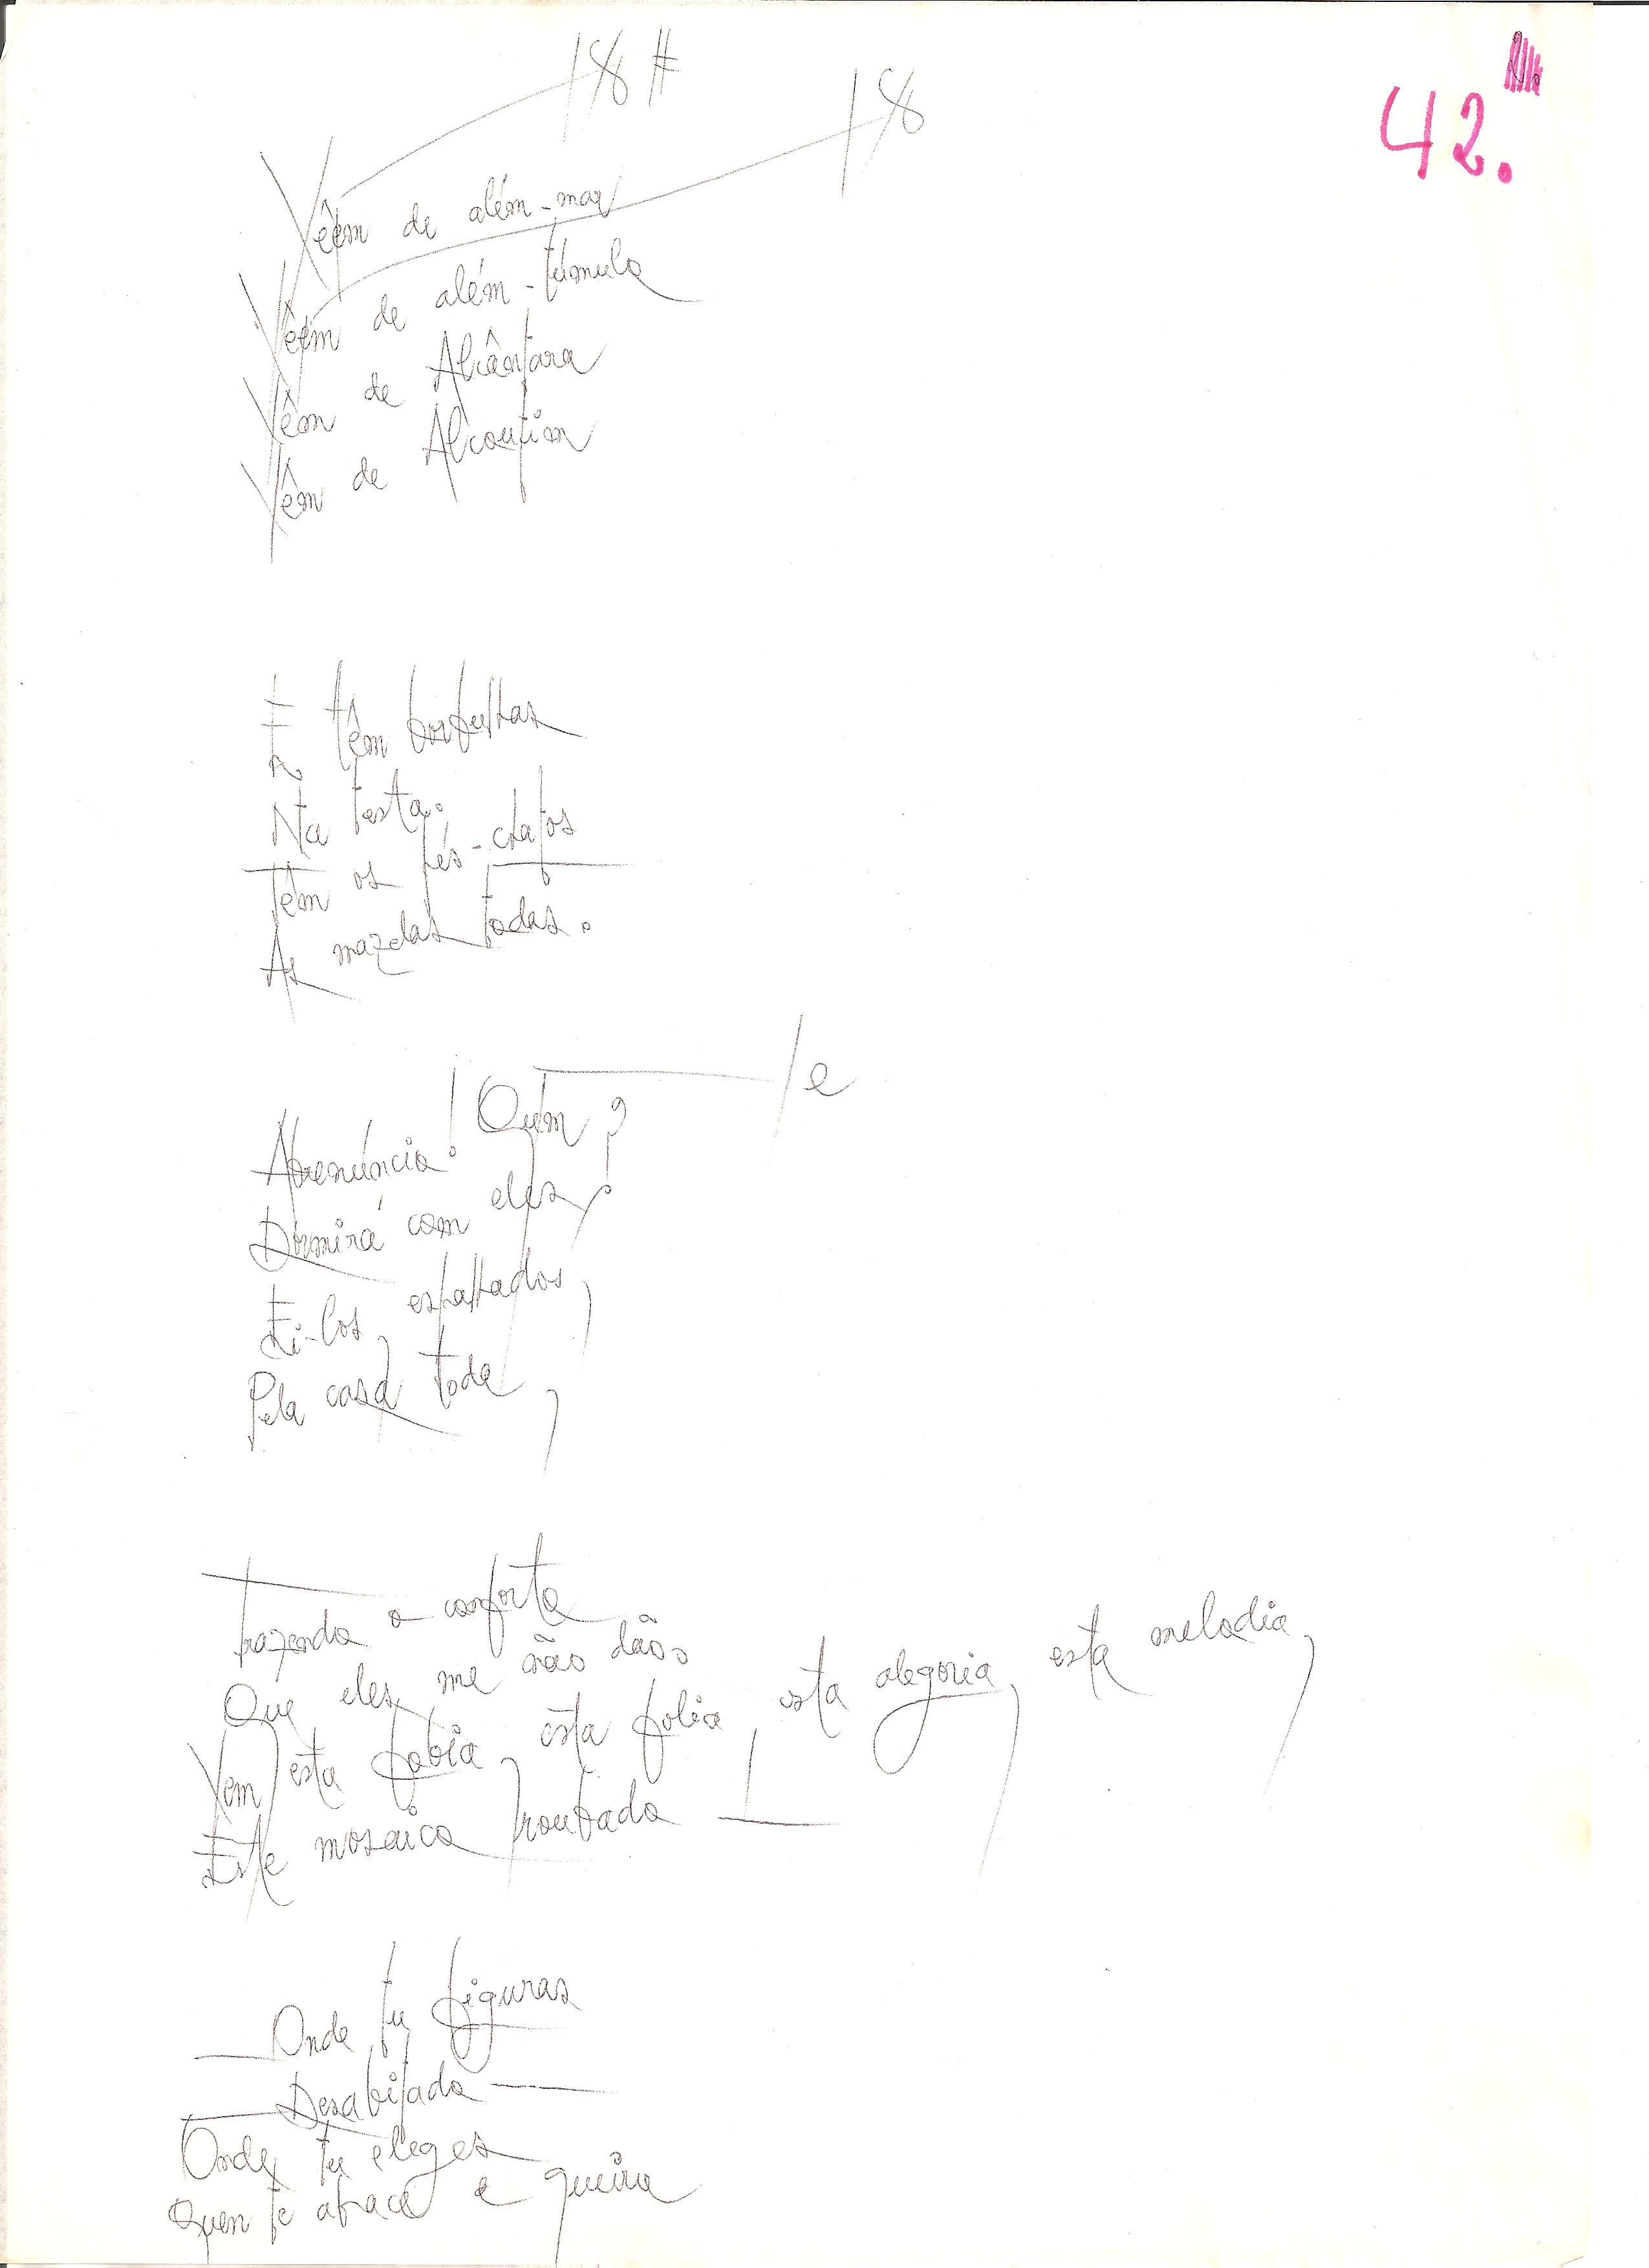 42.
Vêm de além-mar
Vêm de além-túmulo
Vêm de Alcântara
Vêm de Alcoutim
E têm borbultas
Na testa.
Têm os pés-chatos
As mazelas todas.
Abrenúncia! Quem?
Dormirá com eles?
Ei-los, espalhados,
Pela casa toda,
Trazendo o conforto
Que eles me não dão.
Vem esta fobia, esta folia, esta alegoria, esta melodia,
Este mosaico roubado —
— Onde tu figuras
— Desabitado —
Onde tu eleges
Quem te abrace e queira